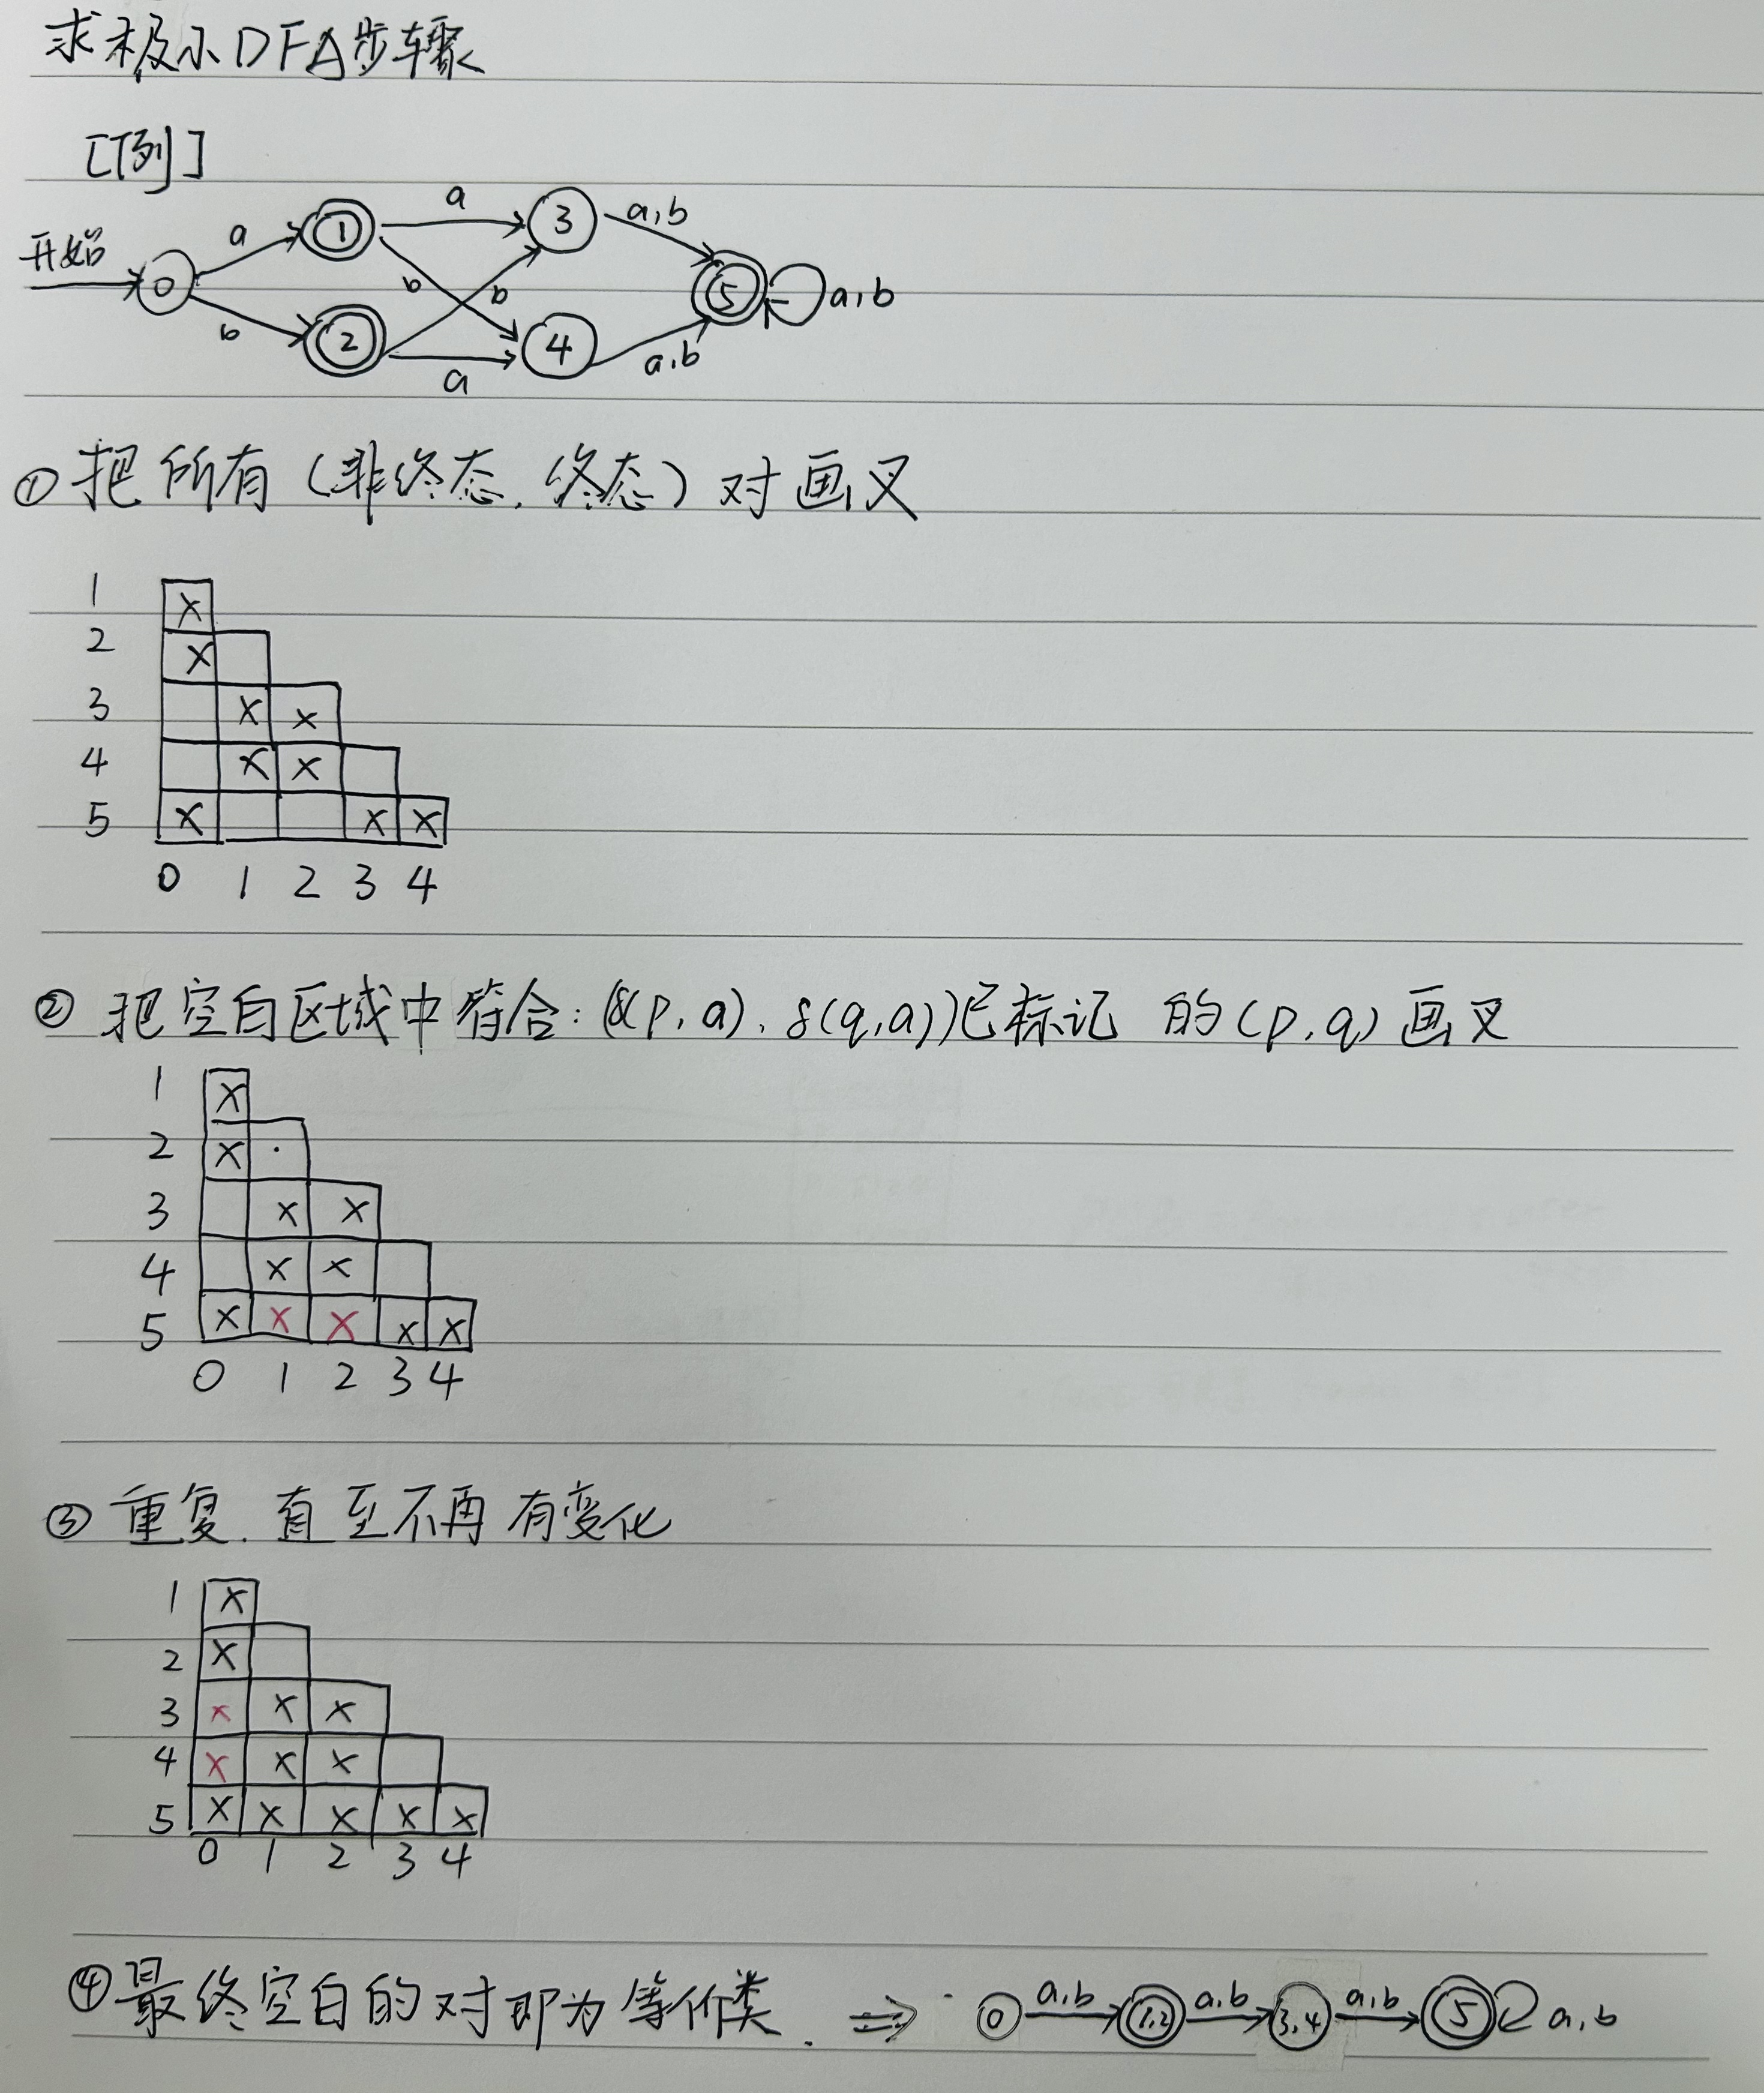 求极小DFA步骤
[例]
开始 0 a 1 a 3 a,b 5 a,b
b 2 b b a 4 a,b
①把所有(非终态,终态)对画叉
1 X
2 X
3 X X
4 X X
5 X X X
0 1 2 3 4
②把空白区域中符合:(δ(p,a),δ(q,a))已标记的(p,q)画叉
1 X
2 X ·
3 X X
4 X X
5 X X X X X
0 1 2 3 4
③重复.直至不再有变化
1 X
2 X
3 X X X
4 X X X
5 X X X X X
0 1 2 3 4
④最终空白的对即为等价类. ⇒ 0 a,b 1,2 a,b 3,4 a,b 5 a,b